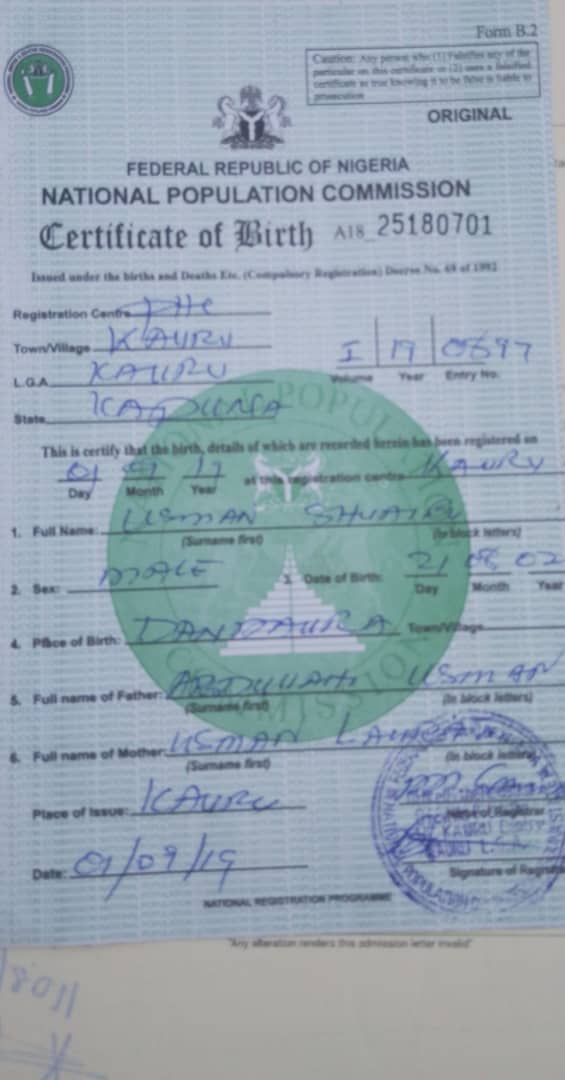 Form B.2
Caution: Any person who (1) Falsifies any of the
particular on this certificate or (2) uses a falsified
certificate as true knowing it to be false is liable to
prosecution
ORIGINAL
FEDERAL REPUBLIC OF NIGERIA
NATIONAL POPULATION COMMISSION
Certificate of Birth A18_25180701
Issued under the births and Deaths Etc. (Compulsory Registration) Decree No. 69 of 1992
Registration Centre PHC
Town/Village KAURU
L.G.A KAURU
I 19 0697
Volume Year Entry No.
State KADUNA
This is certify that the birth, details of which are recorded herein has been registered on
01 19 at this registration centre KAURU
Day Month Year
1. Full Name: USMAN SHUAIBU
(Surname first) (In block letters)
2. Sex: MALE 3. Date of Birth: 21 08 02
Day Month Year
4. Place of Birth: DANDAURA Town/Village
5. Full name of Father: ABDULLAHI USMAN
(Surname first) (In block letters)
6. Full name of Mother: USMAN
(Surname first) (In block letters)
Place of Issue: KAURU
Name of Registrar
Date: 01/09/19
Signature of Registrar
NATIONAL REGISTRATION PROGRAMME
"Any alteration renders this admission letter invalid"